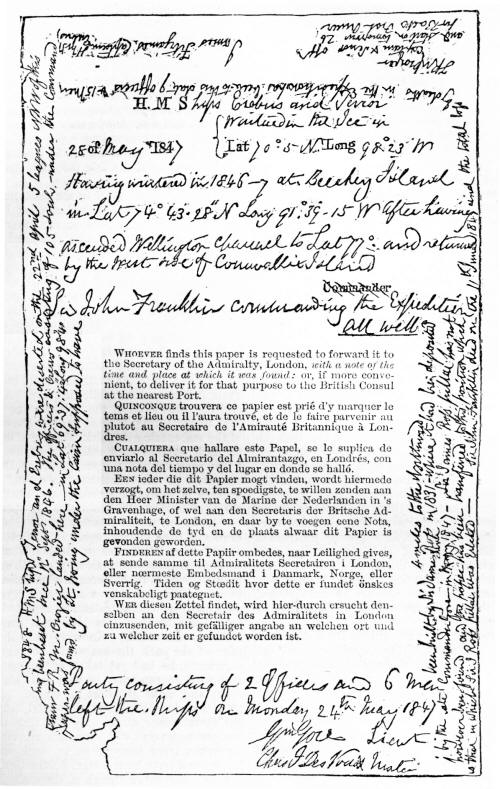 H. M. Ships Erebus and Terror
Wintered in the Ice in
28 of May 1847 Lat 70° 5' N Long 98° 23' W
Having wintered in 1846–7 at Beechey Island
in Lat 74° 43' 28" N Long 91° 39' 15" W after having
ascended Wellington Channel to Lat 77° and returned
by the West side of Cornwallis Island
Commander
Sir John Franklin commanding the Expedition
All well
WHOEVER finds this paper is requested to forward it to
the Secretary of the Admiralty, London, with a note of the
time and place at which it was found: or, if more conve-
nient, to deliver it for that purpose to the British Consul
at the nearest Port.
QUINCONQUE trouvera ce papier est prié d'y marquer le
tems et lieu ou il l'aura trouvé, et de le faire parvenir au
plutot au Secretaire de l'Amirauté Britannique à Lon-
dres.
CUALQUIERA que hallare este Papel, se le suplica de
enviarlo al Secretario del Almirantazgo, en Londrés, con
una nota del tiempo y del lugar en donde se halló.
EEN ieder die dit Papier mogt vinden, wordt hiermede
verzogt, om het zelve, ten spoedigste, te willen zenden aan
den Heer Minister van de Marine der Nederlanden in 's
Gravenhage, of wel aan den Secretaris der Britsche Ad-
miraliteit, te London, en daar by te voegen eene Nota,
inhoudende de tyd en de plaats alwaar dit Papier is
gevonden geworden.
FINDEREN af dette Papiir ombedes, naar Leilighed gives,
at sende samme til Admiralitets Secretairen i London,
eller nœrmeste Embedsmand i Danmark, Norge, eller
Sverrig. Tiden og Stœdit hvor dette er fundet önskes
venskabeligt paategnet.
WER diesen Zettel findet, wird hier-durch ersucht den-
selben an den Secretair des Admiralitets in London
einzusenden, mit gefälliger angabe an welchen ort und
zu welcher zeit er gefundet worden ist.
Party consisting of 2 Officers and 6 Men
left the Ships on Monday 24th May 1847
Gm Gore Lieut
Chas F Des Voeux Mate
1848 HM Ships Terror and Erebus were deserted on the 22nd April 5 leagues NNW of this
having been beset since 12th Septr 1846. The officers & crews consisting of 105 souls under the command
of Captain F.R.M. Crozier landed here in Lat 69° 37' 42" Long 98° 41'
This paper was found by Lt Irving under the cairn supposed to have
been built by Sir James Ross in 1831 where it had been deposited
4 miles to the Northward
by the late Commander Gore in June 1847. Sir James Ross' pillar has not
however been found and the paper has been transferred to this position which
is that in which Sir J Ross' pillar was erected — Sir John Franklin died on the 11 June 1847 and the total loss
by deaths in the Expedition has been to this date 9 officers & 15 men
James Fitzjames Captain HMS Erebus
F R M Crozier
Captain & Senior Offr
and start on tomorrow 26th
for Backs Fish River